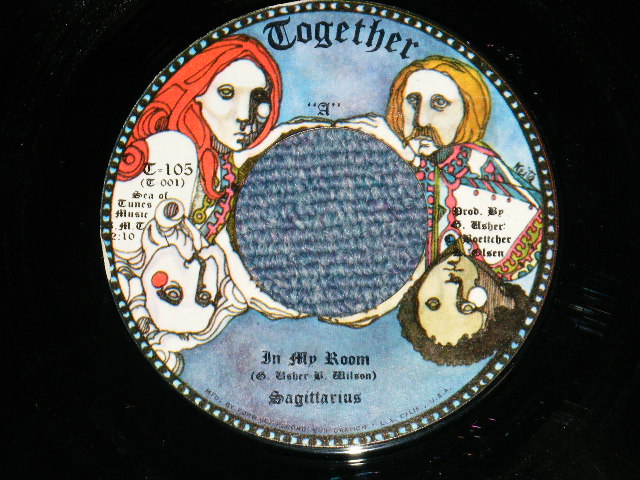 Together
"A"
T-105
(T 001)
Sea of
Tunes
Music
B.M.I.
2:10
Prod. By
G. Usher
Boettcher
Olsen
In My Room
(G. Usher B. Wilson)
Sagittarius
RECORD CORPORATION, L.A. CALIF. U.S.A.